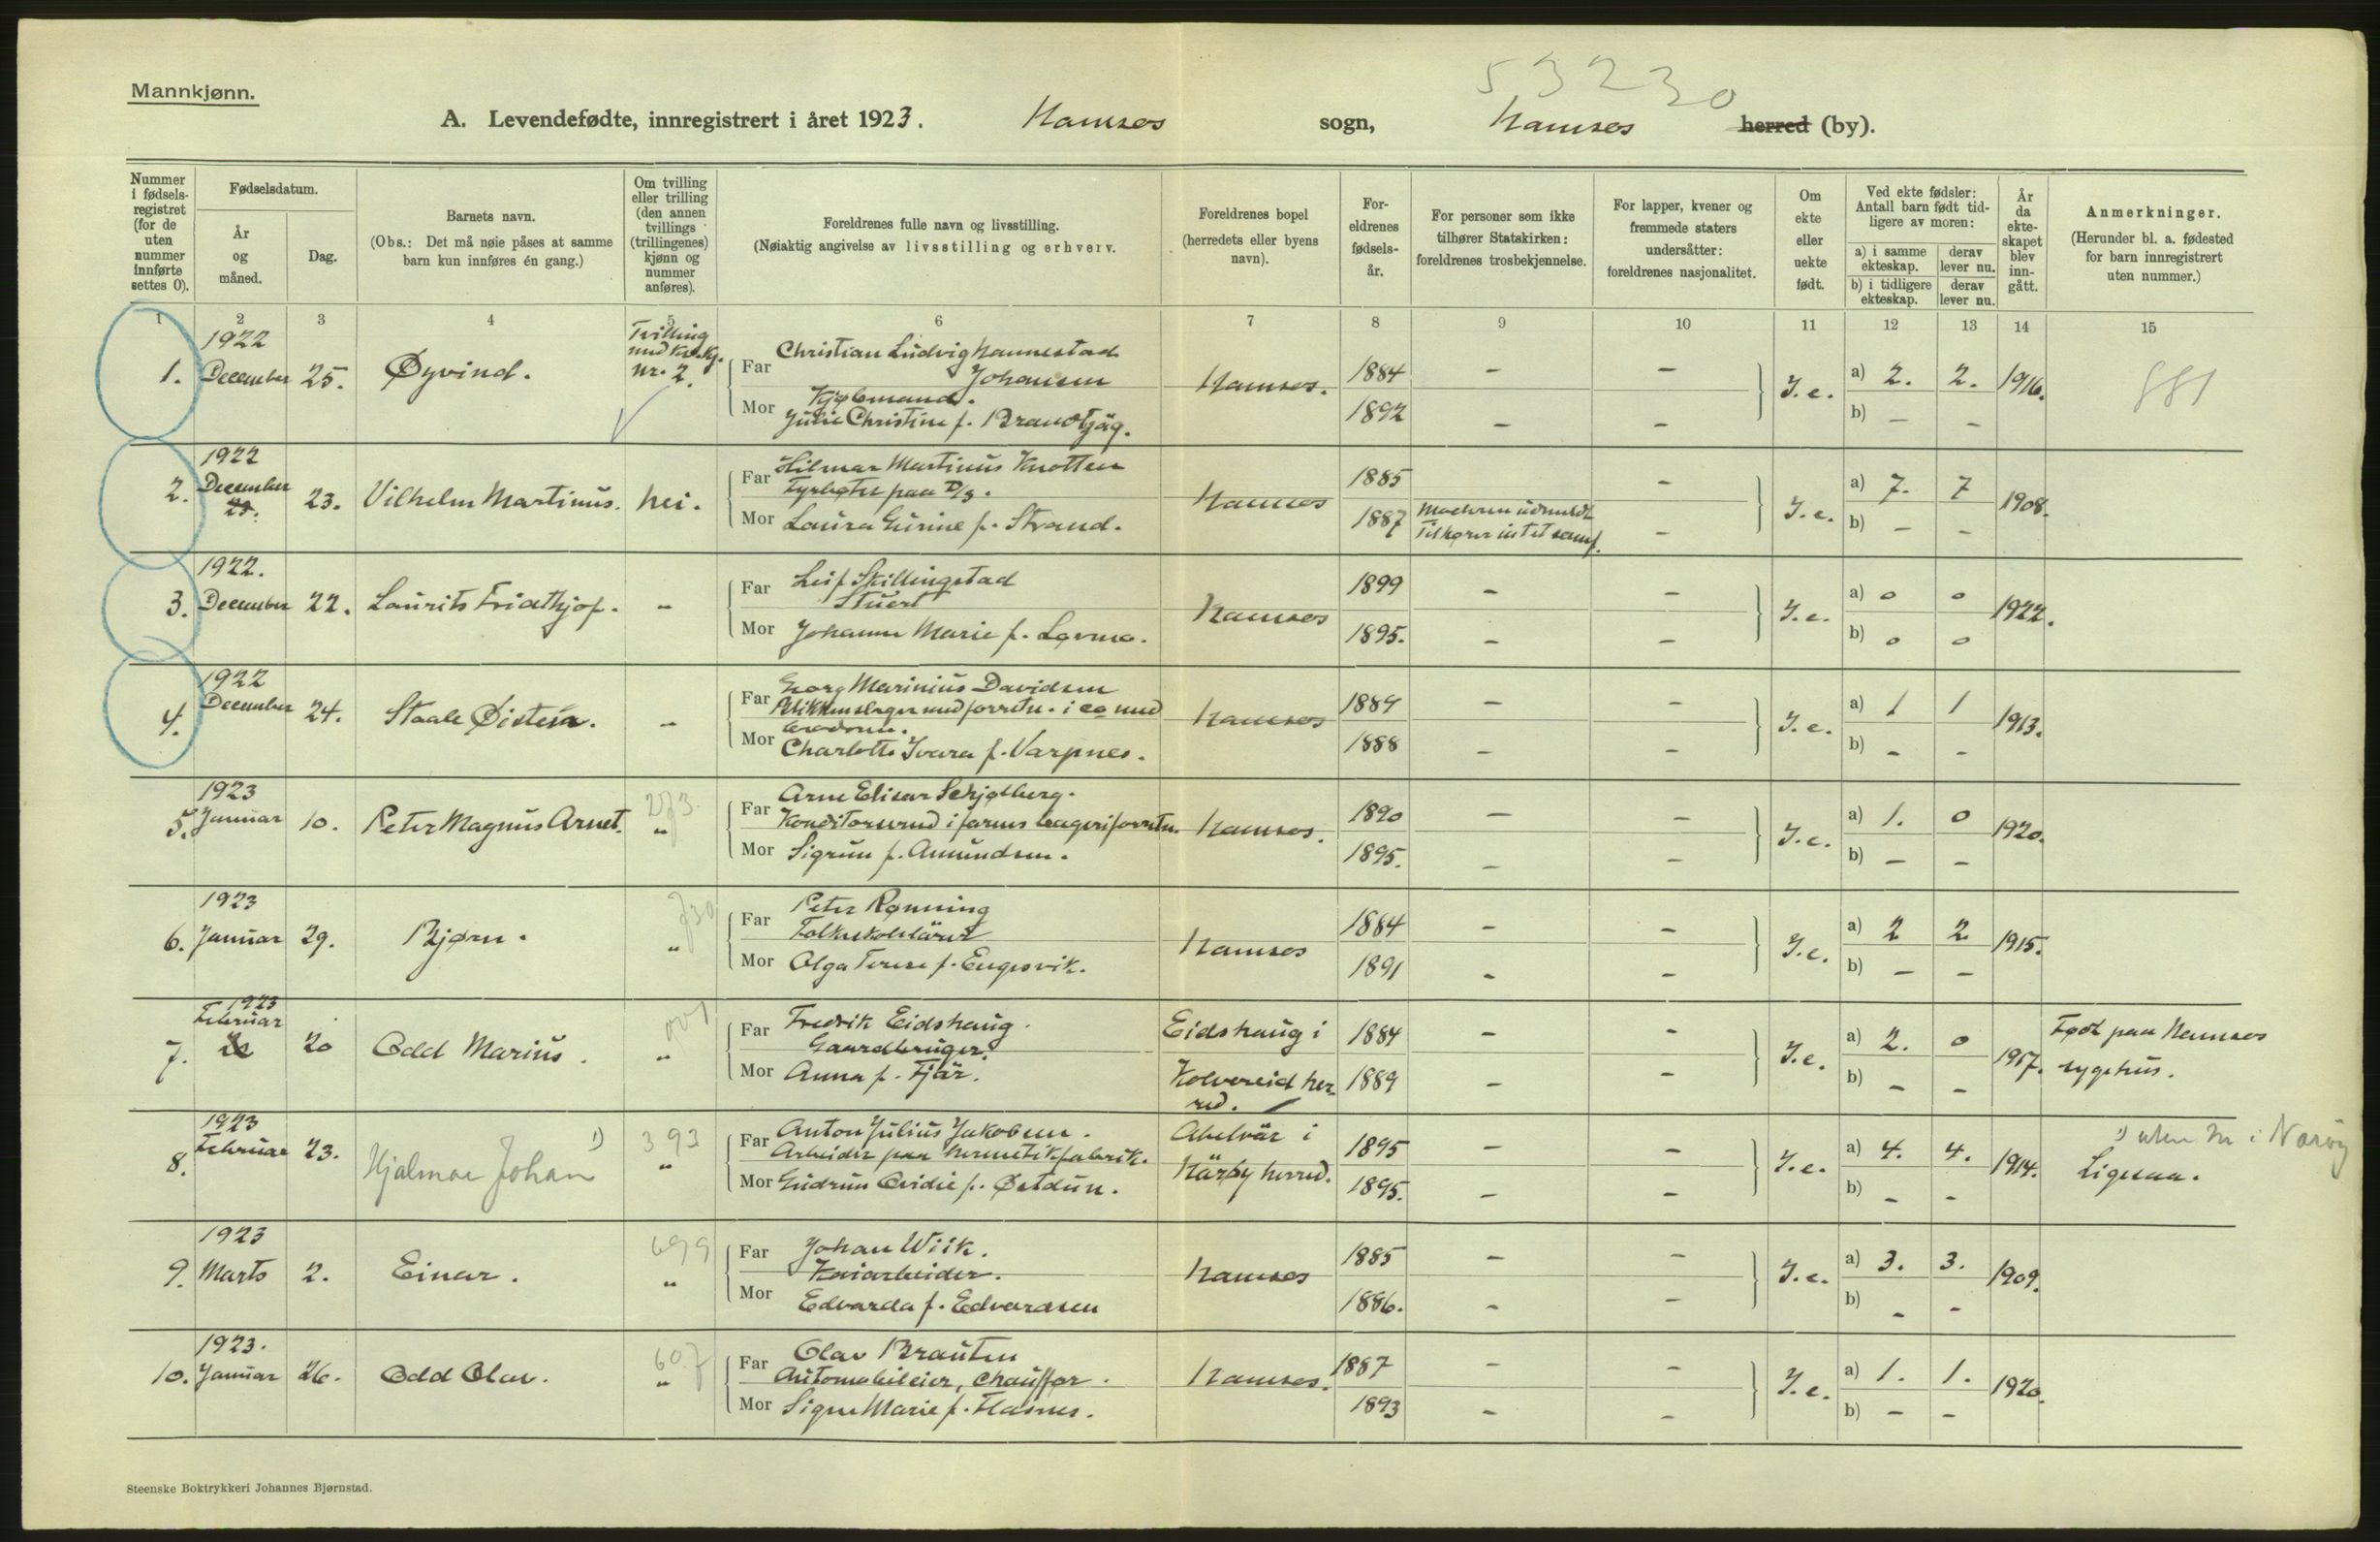 53230
Mannkjønn.
A. Levendefødte, innregistrert i året 1923. Namsos sogn, Namsos herred (by).
Nummer i fødsels-registret (for de uten nummer innførte settes 0).
Fødselsdatum.
År og måned.
Dag.
Barnets navn.
(Obs.: Det må nøie påses at samme barn kun innføres én gang.)
Om tvilling eller trilling (den annen tvillings (trillingenes) kjønn og nummer anføres).
Foreldrenes fulle navn og livsstilling.
(Nøiaktig angivelse av livsstilling og erhverv.
Foreldrenes bopel (herredets eller byens navn).
For-eldrenes fødsels-år.
For personer som ikke tilhører Statskirken: foreldrenes trosbekjennelse.
For lapper, kvener og fremmede staters undersåtter: foreldrenes nasjonalitet.
Om ekte eller uekte født.
Ved ekte fødsler: Antall barn født tid-ligere av moren:
a) i samme ekteskap.
derav lever nu.
b) i tidligere ekteskap.
derav lever nu.
År da ekte-skapet blev inn-gått.
Anmerkninger.
(Herunder bl. a. fødested for barn innregistrert uten nummer.)
1 2 3 4 5 6 7 8 9 10 11 12 13 14 15
1. 1922 December 25. Øyvind. Tvilling med kv.kj. nr. 2.
Far Christian Ludvig Hannestad Johansen
Kjøbmand.
Mor Julie Christine f. Brandtjäg.
Namsos. 1884 1892 - - - - I.e. a) 2. 2. b) - - 1916.
2. 1922 December 23. Vilhelm Martinus. Nei.
Far Hilmar Martinus Knotten
Fyrbøter paa D/S.
Mor Laura Gurine f. Strand.
Namsos 1885 1887 Moderen udmeldt Tilhører intet samf. - - I.e. a) 7. 7 b) - - 1908.
3. 1922. December 22. Laurits Fridthjof. "
Far Leif Skillingstad
Stuert
Mor Johanne Marie f. Løvmo.
Namsos 1899 1895. - - - - I.e. a) 0 0 b) 0 0 1922.
4. 1922 December 24. Staale Øistein. "
Far Georg Marinius Davidsen
Blikkenslager med forretn. i co med
brodren.
Mor Charlotte Ivara f. Varpnes.
Namsos 1889 1888 - - - - I.e. a) 1 1 b) - - 1913.
5. 1923 Januar 10. Peter Magnus Arnet. "
Far Arne Elisar Schjølberg.
Konditorsvend i farens bageriforretn.
Mor Sigrun f. Amundsen.
Namsos. 1890 1895. - - - - I.e. a) 1. 0 b) - - 1920.
6. 1923 Januar 29. Bjørn. "
Far Peter Rønning
Folkeskolelärer
Mor Olga Terese f. Engesvik.
Namsos 1884 1891 - - - - I.e. a) 2 2 b) - - 1915.
7. 1923 Februar 20 Odd Marius. "
Far Fredrik Eidshaug.
Gaardbruger.
Mor Anna f. Fjär.
Eidshaug i Kolvereid herred. 1884 1889 - - - - I.e. a) 2. 0 b) - - 1917. Født paa Namsos sygehus.
8. 1923 Februar 23. Hjalmar Johan 1) 393 "
Far Anton Julius Jakobsen.
Arbeider paa hermetikfabrik.
Mor Gudrun Ovidie f. Østdun.
Abelvär i Närøy herred. 1895 1895. - - - - I.e. a) 4. 4. b) - - 1914. 1) uten nr i Narøy
Ligesaa.
9. 1923 Marts 2. Einar. 699 "
Far Johan Wiik.
Kaiarbeider.
Mor Edvarda f. Edvardsen
Namsos 1885 1886. - - - - I.e. a) 3. 3. b) - - 1909.
10. 1923. Januar 26. Odd Olav. 607 "
Far Olav Brauten
Automobileier, chauffør.
Mor Signe Marie f. Flasnes.
Namsos. 1887 1893 - - - - I.e. a) 1. 1. b) - - 1920.
Steenske Boktrykkeri Johannes Bjørnstad.